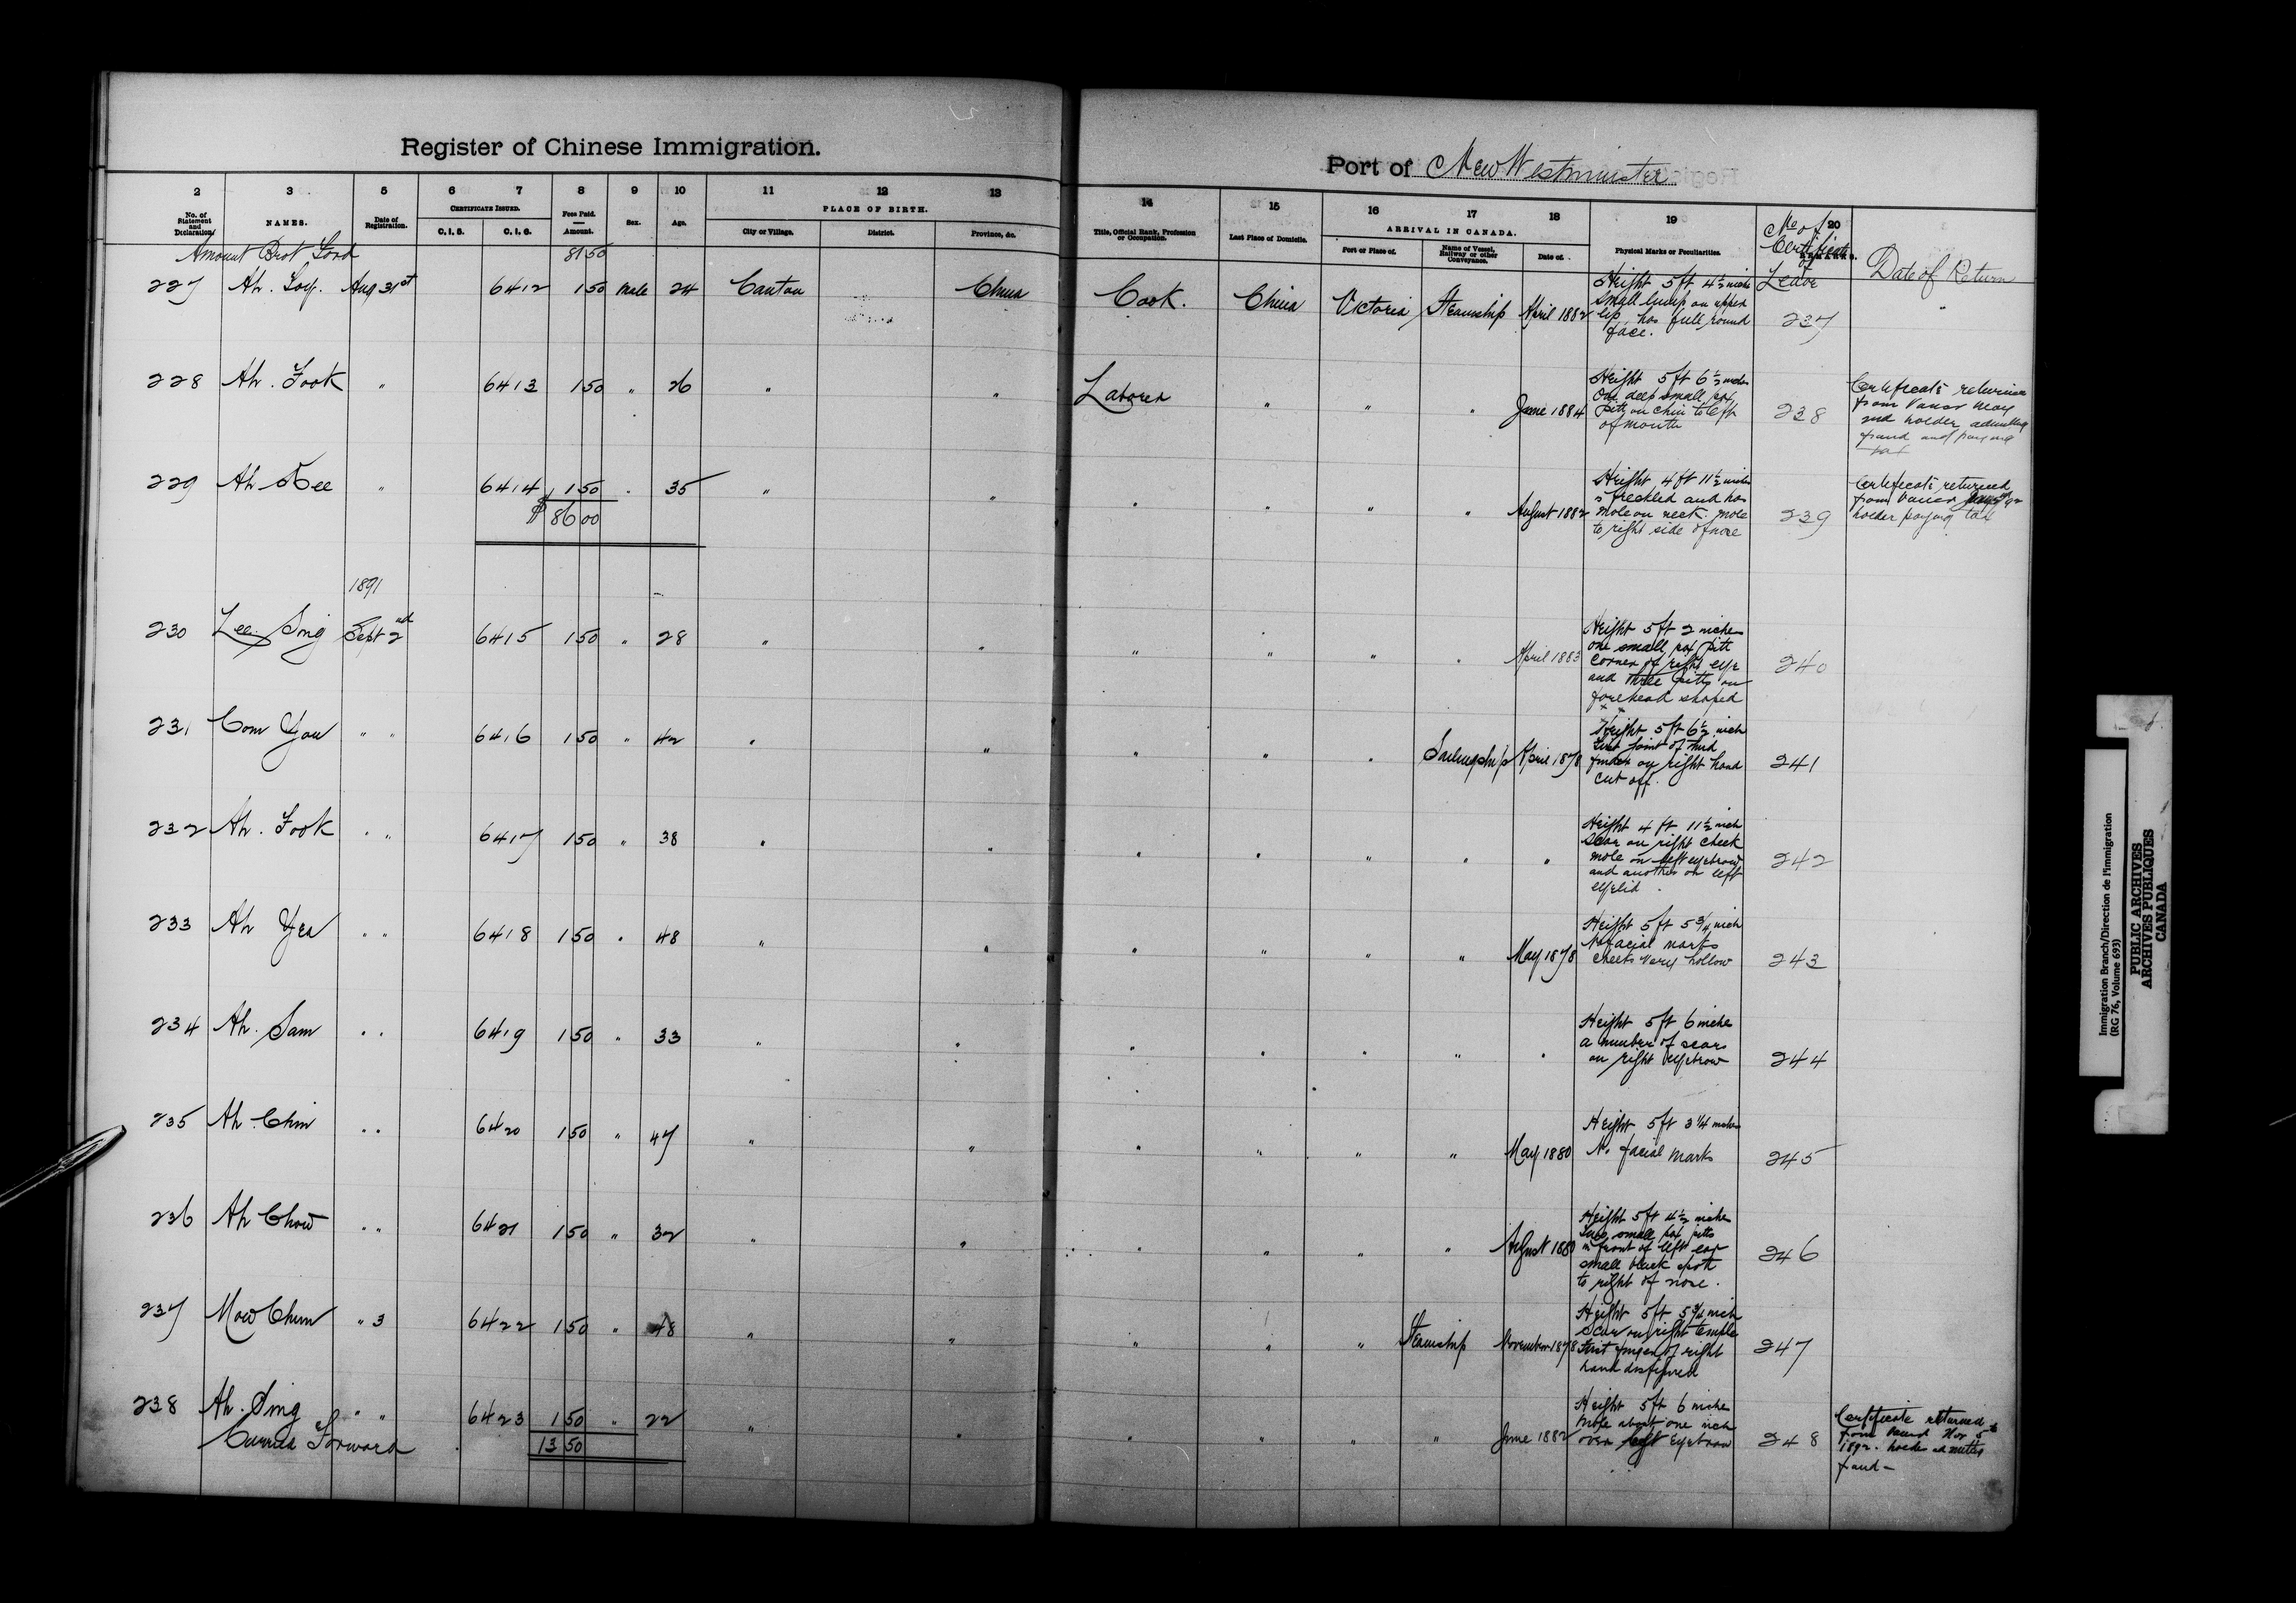 Register of Chinese Immigration.
Port of New Westminster
2 3 5 6 7 8 9 10 11 12 13 14 15 16 17 18 19 20
No. of Statement and Declaration
NAMES.
Date of Registration.
CERTIFICATE ISSUED.
C. I. 5.
C. I. 6.
Fees Paid. Amount.
Sex.
Age.
PLACE OF BIRTH.
City or Village.
District.
Province, &c.
Title, Official Rank, Profession or Occupation.
Last Place of Domicile.
ARRIVAL IN CANADA.
Port or Place of.
Name of Vessel, Railway or other Conveyance.
Date of.
Physical Marks or Peculiarities.
No of
Certificate
of
Leave
Date of Return
Amount Brot Ford 81 50
227 Ah. Loy. Aug 31st 6412 1 50 Male 24 Canton China Cook. China Victoria Steamship April 1882
Height 5 ft 4½ inches
small lump on upper
lip has full round
face.
237
228 Ah. Fook " 6413 1 50 " 26 " " Laborer " " " June 1884
Height 5 ft 6½ inches
One deep small pox
pitt on chin to left
of mouth
238
Certificate returned
from Vancr May
2nd holder admitting
fraud and paying
tax
229 Ah Kee " 6414 1 50 " 35 " " " " " " August 1882
Height 4 ft 11½ inches
is freckled and has
mole on neck. mole
to right side of nose
239
Certificate returned
from Vancr
holder paying tax
$ 86 00
1891
230 Lee Sing Sept 2nd 6415 1 50 " 28 " " " " " " April 1883
Height 5 ft 2 inches
one small pox pitt
corner of right eye
and three pitts on
forehead shaped
240
231 Com You " " 6416 1 50 " 42 " " " " " Sailingship April 1878
Height 5 ft 6½ inch
first joint of third
finger on right hand
cut off.
241
232 Ah. Fook " " 6417 1 50 " 38 " " " " " " "
Height 4 ft 11½ inch
Scar on right cheek
mole on left eyebrow
and another on left
eyelid.
242
233 Ah Yea " " 6418 1 50 " 48 " " " " " " May 1878
Height 5 ft 5¾ inch
No facial marks
cheeks very hollow
243
234 Ah. Sam " " 6419 1 50 " 33 " " " " " " "
Height 5 ft 6 inches
a number of scars
on right eyebrow
244
235 Ah. Chin " " 6420 1 50 " 47 " " " " " " May 1880
Height 5 ft 3¼ inches
No facial marks
245
236 Ah Chow " " 6421 1 50 " 32 " " " " " " August 1880
Height 5 ft 4½ inches
Two small pox pitts
in front of left ear
small black spot
to right of nose.
246
237 Mow Chum " 3 6422 1 50 " 48 " " " " " Steamship November 1878
Height 5 ft 5¾ inch
Scar on right temple
First finger of right
hand disfigured
247
238 Ah. Sing " " 6423 1 50 " 22 " " " " " " June 1882
Height 5 ft 6 inches
Mole about one inch
over left eyebrow
248
Certificate returned
from Vancr Nov 5th
1892. holder admitting
fraud –
Carried Forward 13 50
Immigration Branch/Direction de l'immigration
(RG 76, Volume 693)
PUBLIC ARCHIVES
ARCHIVES PUBLIQUES
CANADA